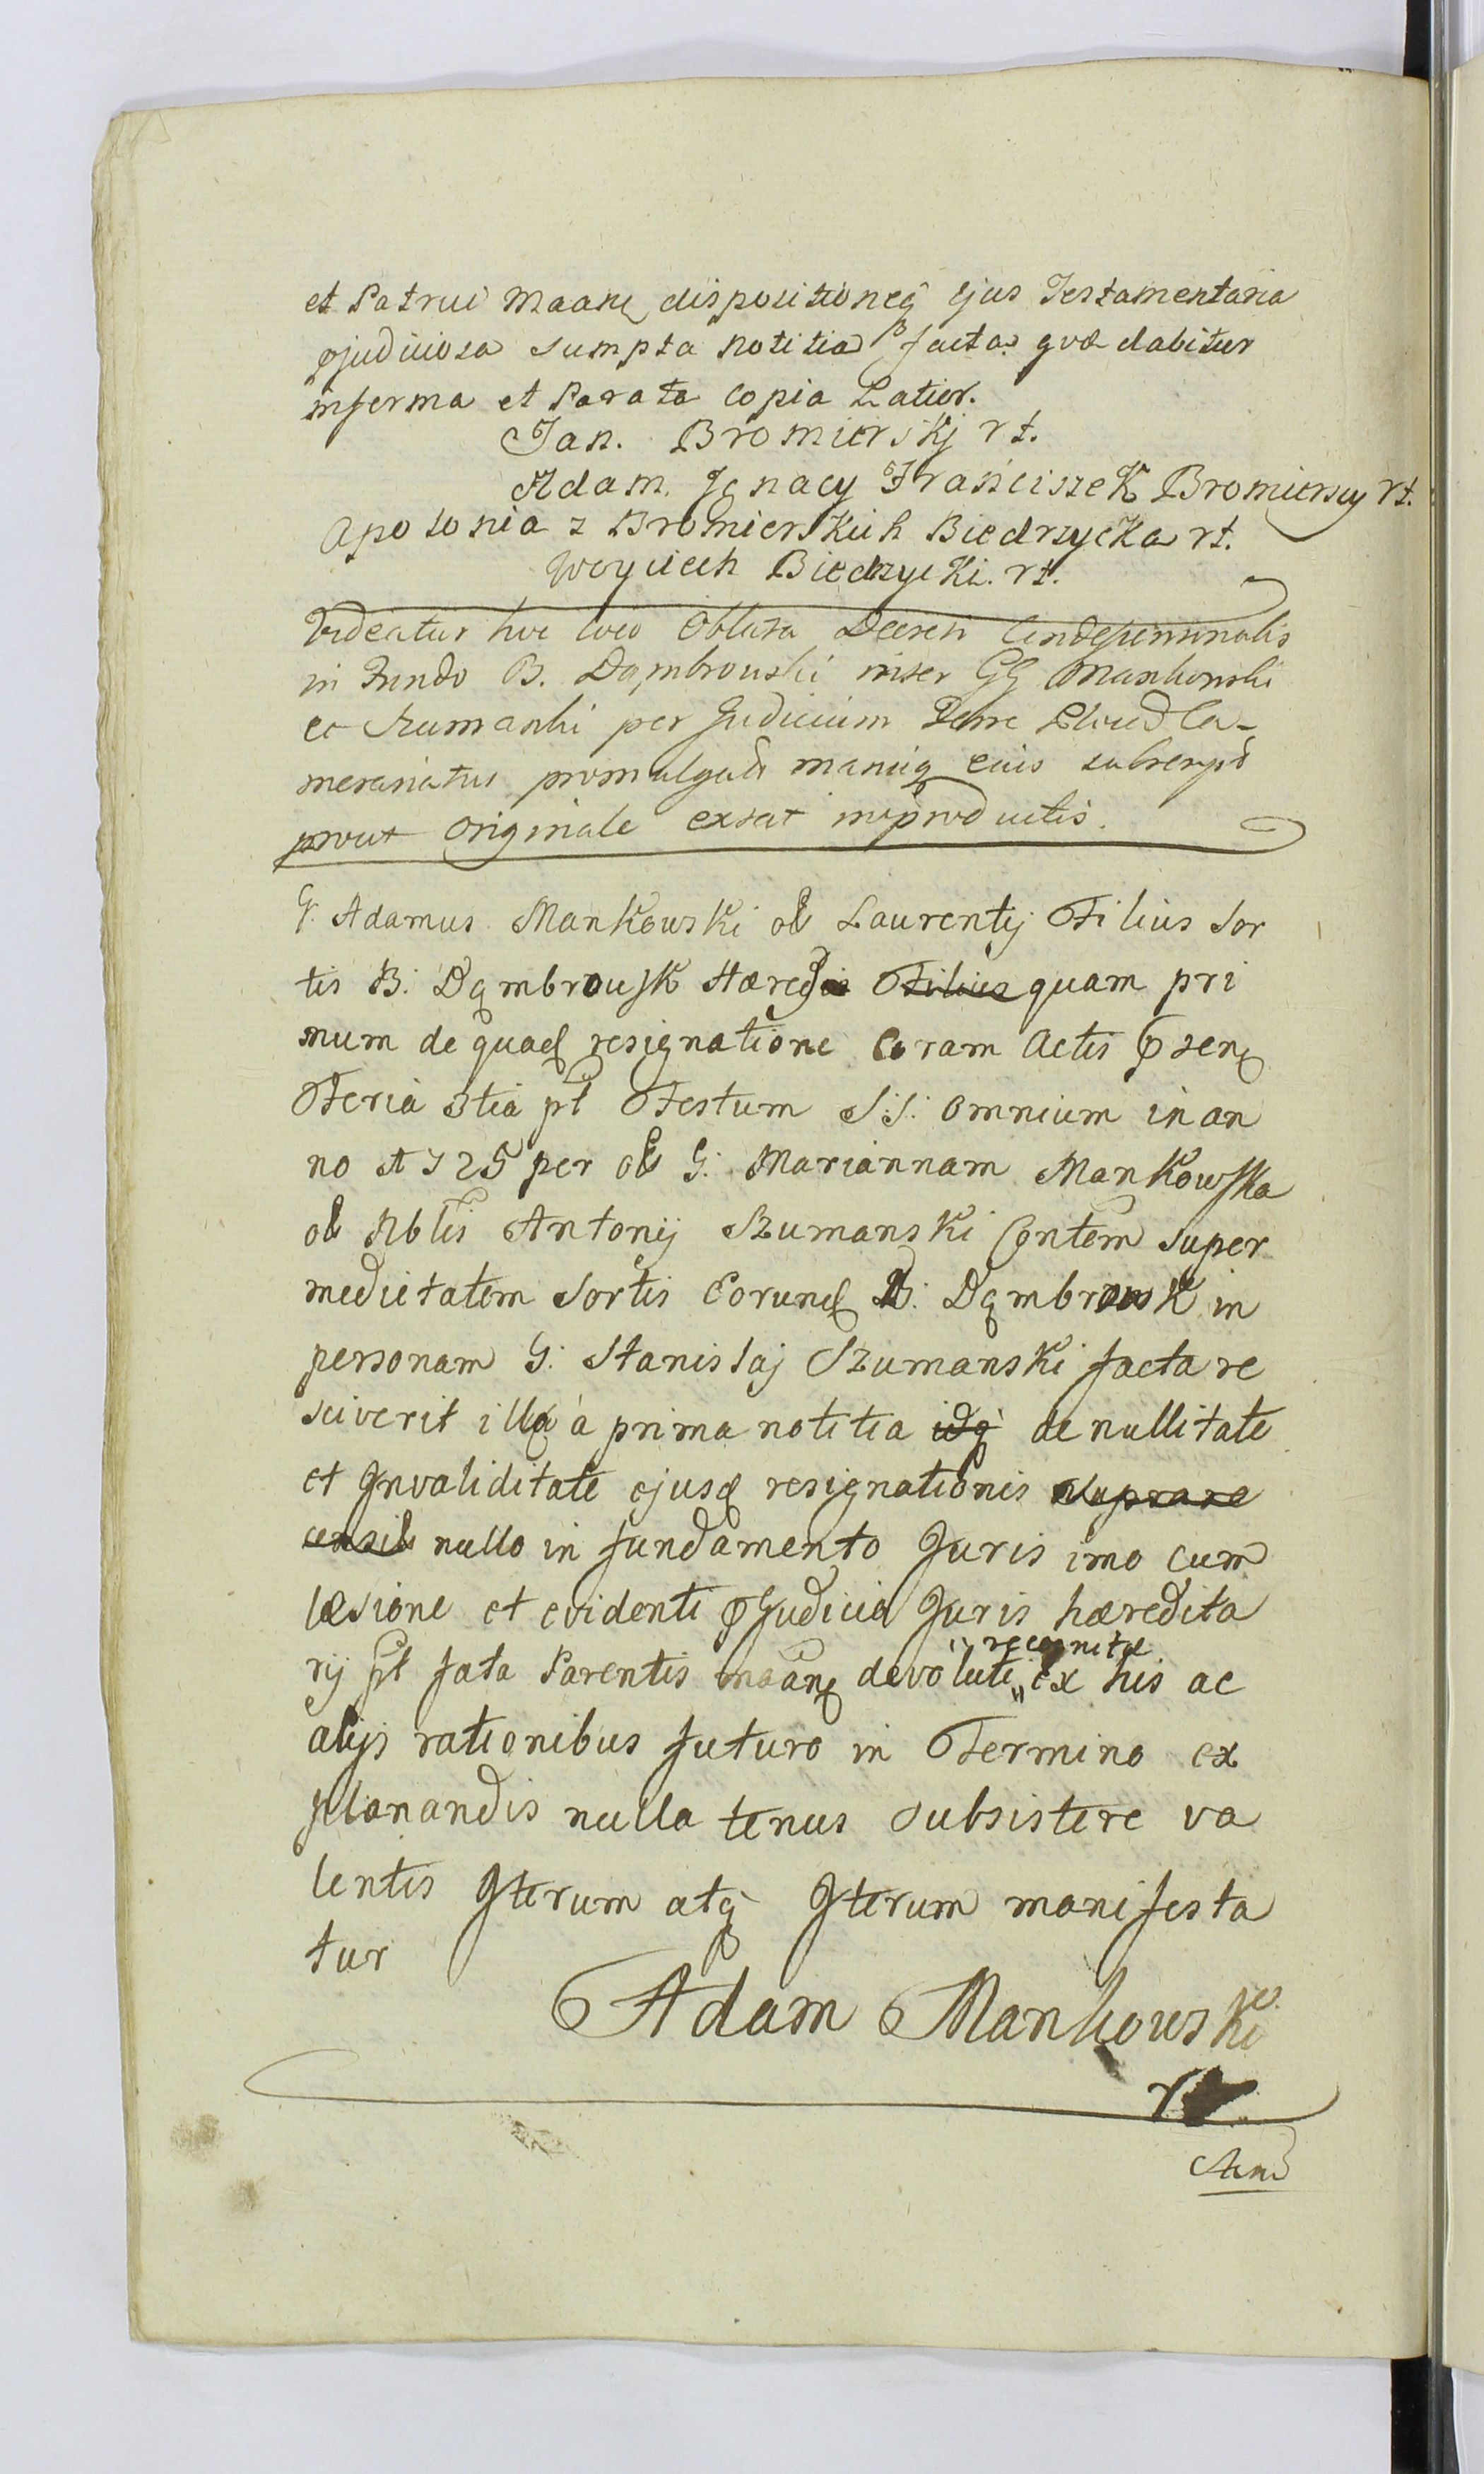 et Patrui maanę dispositioneq̃ ejus Testamentaria
pjudiciosa sumpta notitia facta qvæ dabitur
in ferma et Parata Copia Latior.
Jan. Bromierskj rt.
Adam. Jgnacy Franciszek Bromierscy rt.
Apolonia z Bromierskich Biedrzycka rt.
Woyciech Biedrzycki. rt.
Videatur hoc loco Oblata Decreti Condescensionalis
in Fundo B. Dąmbrowski inter GG Mankowski
et Szumanki per Judicium Terre
merariatus promulgati manuq eius subscrpt
prout Originale extat inproductis.
G. Adamus Mankowski ol Laurentij Filius Sor
tis B: Dąmbrowsk Hæredis Filius quam pri
mum de quad resignatione Coram Actis Psenę
Feria 3tia pt Festum S:S: Omnium in an
no 1725 per ol G: Mariannam Mankowska
ol Nblis Antonij Szumanski Contem super
medietatem Sortis Eorund B: Dąmbrowsk in
personam G: Stanislaj Szumanski facta re
sciverit illą a prima notitia idq̃ de nullitate
et Jnvaliditate ejusd resignationis
nullo in fundamento Juris imo cum
læsione et evidenti pjudicio Juris hæredita
rij pt fata Parentis maanę devoluti „ recognitæ ex his ac
alijs rationibus futuro in Termino ex
planandis nulla tenus subsistere va
lentis Jterum atq̃ Jterum manifesta
tur
Adam Mankowski